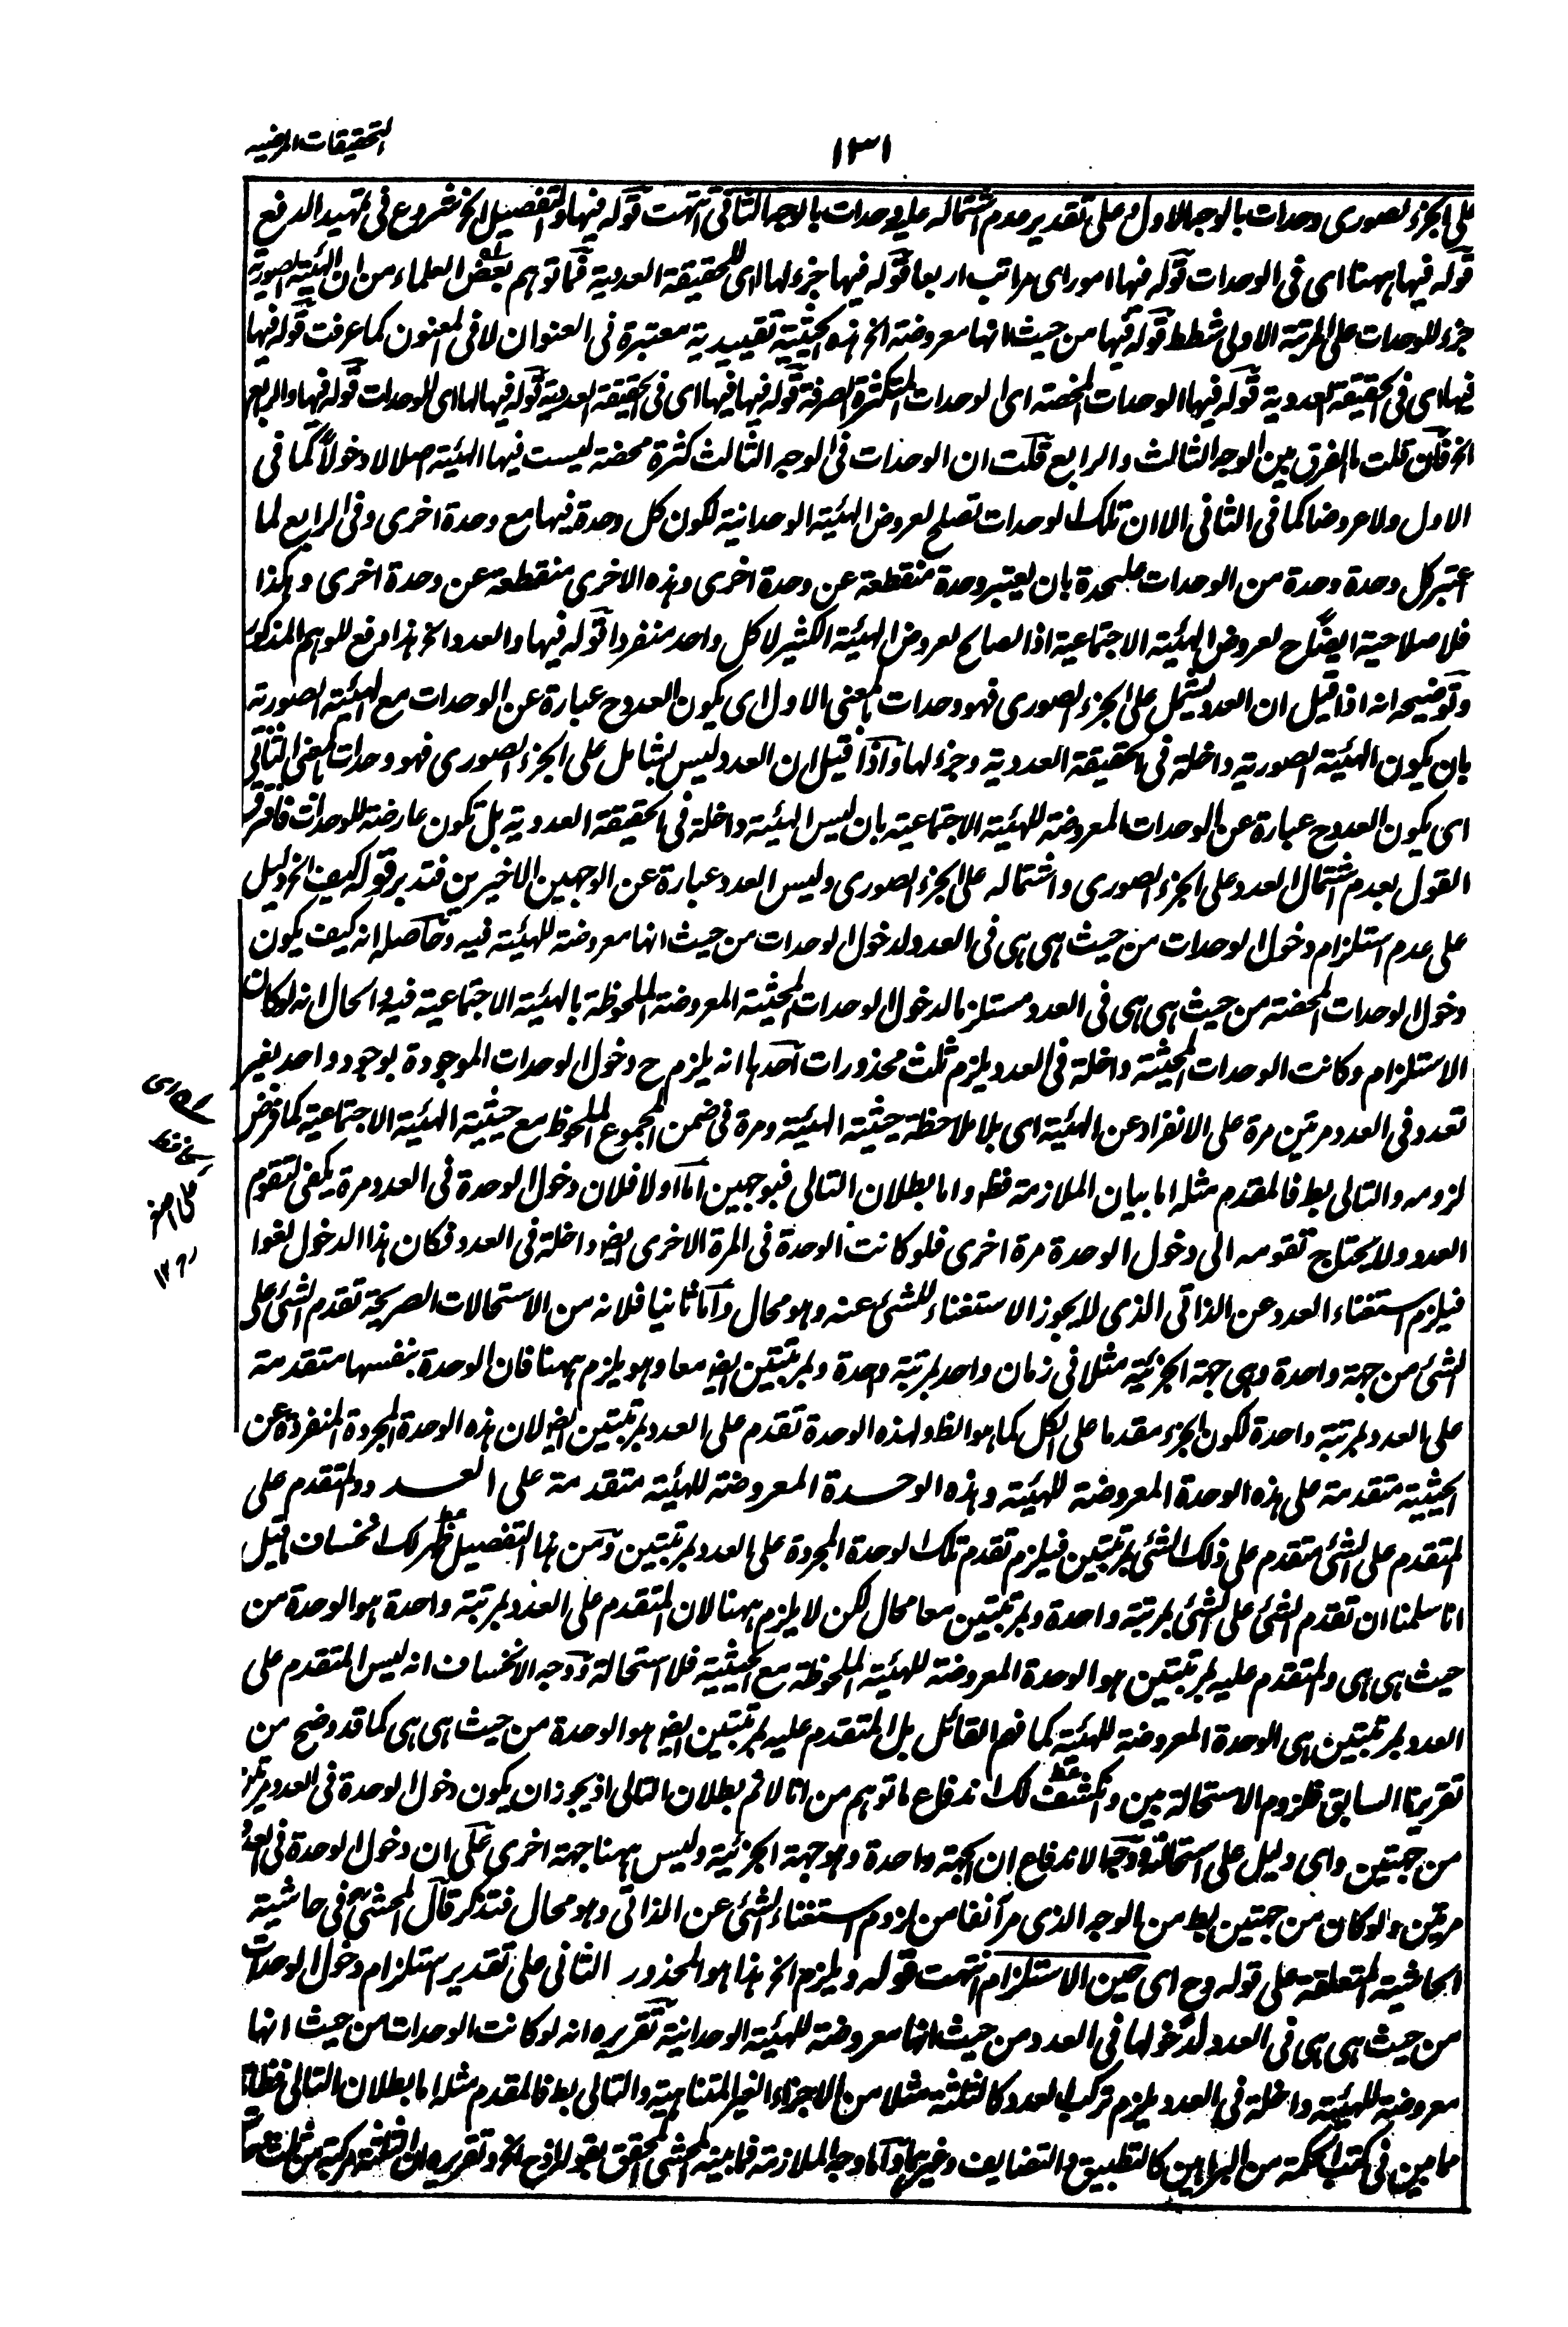 التحقيقات المرضيه
١٣١
على الجزء الصورى وحدات بالوجه الاول وعلى تقدير عدم اشتماله عليه وحدات بالوجه الثانى انتهت قوله فيها والتفصيل الخ شروع فى تمهيد الدفع
قوله فيها ههنا اى فى الوحدات قوله فيها امور اى مراتب اربعا قوله فيها جزء لها اى للحقيقة العددية فما توهم بعض العلماء من ان الهيئة الصورية
جزء للوحدات على المرتبة الاولى شطط قوله فيها من حيث انها معروضة الخ هذه الحيثية تقييدية معتبرة فى العنوان لا فى المعنون كما عرفت قوله فيها
فيها اى فى الحقيقة العددية قوله فيها الوحدات المحضة اى الوحدات المتكثرة الصرفة قوله فيها فيها اى فى الحقيقة العددية قوله فيها لها اى للوحدات قوله فيها والرابع
الخ فان قلت ما الفرق بين الوجه الثالث والرابع قلت ان الوحدات فى الوجه الثالث كثرة محضة ليست فيها الهيئة اصلا لا دخولا كما فى
الاول ولا عروضا كما فى الثانى الا ان تلك الوحدات تصلح لعروض الهيئة الوحدانية لكون كل وحدة فيها مع وحدة اخرى وفى الرابع لما
اعتبر كل وحدة وحدة من الوحدات عليحدة بان يعتبر وحدة منقطعة عن وحدة اخرى وهذه الاخرى منقطعة عن وحدة اخرى وهكذا
فلا صلاحية ايضا ح لعروض الهيئة الاجتماعية اذ الصالح لعروض الهيئة الكثير لا كل واحد منفردا قوله فيها والعدد الخ هذا دفع للوهم المذكور
وتوضيحه انه اذا قيل ان العدد يشتمل على الجزء الصورى فهو وحدات بالمعنى الاول اى يكون العدد ح عبارة عن الوحدات مع الهيئة الصورية
بان يكون الهيئة الصورية داخلة فى الحقيقة العددية وجزء لها واذا قيل ان العدد ليس بشامل على الجزء الصورى فهو وحدات بالمعنى الثانى
اى يكون العدد ح عبارة عن الوحدات المعروضة للهيئة الاجتماعية بان ليس الهيئة داخلة فى الحقيقة العددية بل تكون عارضة للوحدات فافترق
القول بعدم اشتمال العدد على الجزء الصورى واشتماله على الجزء الصورى وليس العدد عبارة عن الوجهين الاخيرين فتدبر قوله كيف الخ دليل
على عدم استلزام دخول الوحدات من حيث هى هى فى العدد لدخول الوحدات من حيث انها معروضة للهيئة فيه وحاصله انه كيف يكون
دخول الوحدات المحضة من حيث هى هى فى العدد مستلزما لدخول الوحدات المحيثة المعروضة الملحوظة بالهيئة الاجتماعية فيه والحال انه لو كان
الاستلزام وكانت الوحدات المحيثة داخلة فى العدد يلزم ثلث محذورات احدها انه يلزم ح دخول الوحدات الموجودة بوجود واحد بغير
تعدد فى العدد مرتين مرة على الانفراد عن الهيئة اى بلا ملاحظة حيثية الهيئة ومرة فى ضمن المجموع الملحوظ مع حيثية الهيئة الاجتماعية كما فرض
لزومه والتالى بط فالمقدم مثله اما بيان الملازمة فظ واما بطلان التالى فبوجهين اما اولا فلان دخول الوحدة فى العدد مرة يكفى لتقوم
العدد ولا يحتاج تقومه الى دخول الوحدة مرة اخرى فلو كانت الوحدة فى المرة الاخرى ايض داخلة فى العدد فكان هذا الدخول لغوا
فيلزم استغناء العدد عن الذاتى الذى لا يجوز الاستغناء للشئ عنه وهو محال واما ثانيا فلانه من الاستحالات الصريحة تقدم الشئ على
الشئ من جهة واحدة وهى جهة الجزئية مثلا فى زمان واحد بمرتبة واحدة وبمرتبتين ايض معا وهو يلزم ههنا فان الوحدة بنفسها متقدمة
على العدد بمرتبة واحدة لكون الجزء مقدما على الكل كما هو الظ ولهذه الوحدة تقدم على العدد بمرتبتين ايض لان هذه الوحدة المجردة المنفردة عن
الحيثية متقدمة على هذه الوحدة المعروضة للهيئة وهذه الوحدة المعروضة للهيئة متقدمة على العدد والمتقدم على
المتقدم على الشئ متقدم على ذلك الشئ بمرتبتين فيلزم تقدم تلك الوحدة المجردة على العدد بمرتبتين ومن هذا التفصيل ظهر لك انخساف ما قيل
انا سلمنا ان تقدم الشئ على الشئ بمرتبة واحدة وبمرتبتين معا محال لكن لا يلزم ههنا لان المتقدم على العدد بمرتبة واحدة هو الوحدة من
حيث هى هى والمتقدم عليه بمرتبتين هو الوحدة المعروضة للهيئة الملحوظة مع الحيثية فلا استحالة ووجه الانخساف انه ليس المتقدم على
العدد بمرتبتين هى الوحدة المعروضة للهيئة كما فهم القائل بل المتقدم عليه بمرتبتين ايض هو الوحدة من حيث هى هى كما قد وضح من
تقريرنا السابق فلزوم الاستحالة بين وانكشف لك اندفاع ما توهم من انا لا نم بطلان التالى اذ يجوز ان يكون دخول الوحدة فى العدد مرتين
من جهتين واى دليل على استحالته ووجه الاندفاع ان الجهة واحدة وهو جهة الجزئية وليس ههنا جهة اخرى على ان دخول الوحدة فى العدد
مرتين ولو كان من جهتين بط من بالوجه الذى مر آنفا من لزوم استغناء الشئ عن الذاتى وهو محال فتذكر قال المحشى فى حاشية
الحاشية المتعلقة على قوله وح اى حين الاستلزام انتهت قوله ويلزم الخ هذا هو المحذور الثانى على تقدير استلزام دخول الوحدات
من حيث هى هى فى العدد لدخولها فى العدد من حيث انها معروضة للهيئة الوحدانية تقريره انه لو كانت الوحدات من حيث انها
معروضة للهيئة داخلة فى العدد يلزم تركب العدد كالثلثة مثلا من الاجزاء الغير المتناهية والتالى بط فالمقدم مثله اما بطلان التالى فظ
مما بين فى كتب الحكمة من البراهين كالتطبيق والتضايف وغيرهما واما وجه الملازمة فما بينه المحشى المحقق بقوله ح الخ وتقريره ان الثلثة مركبة من ثلث